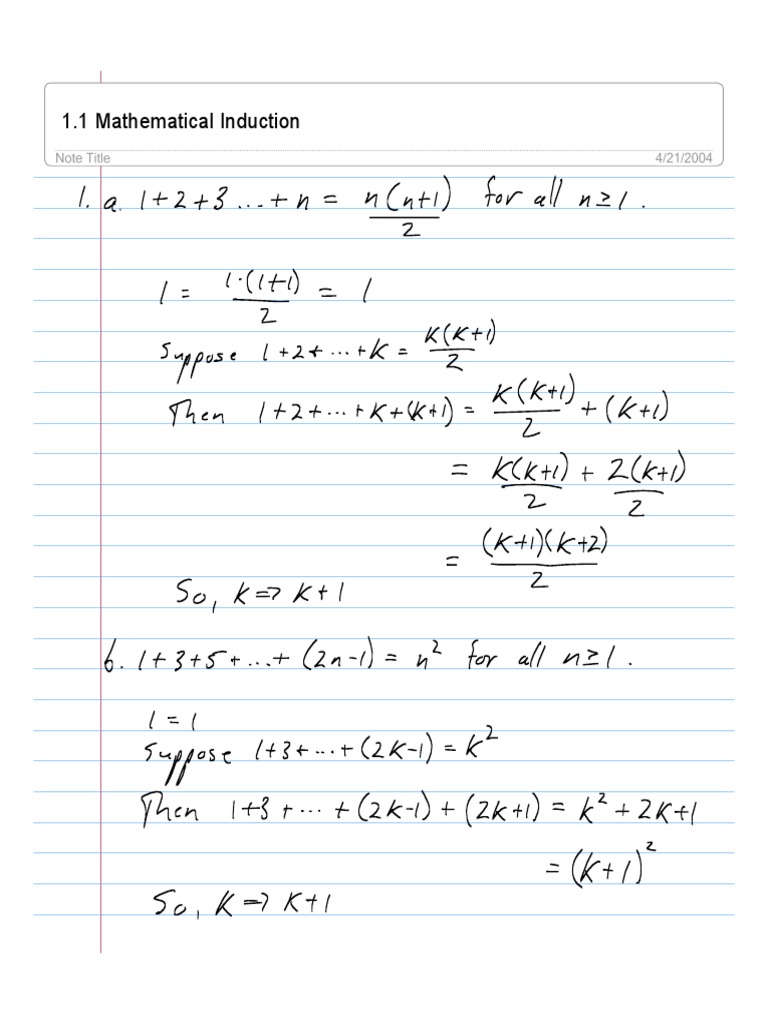 1.1 Mathematical Induction
Note Title 4/21/2004
1. a. 1+2+3...+n = n(n+1)/2 for all n≥1.
1 = 1·(1+1)/2 = 1
Suppose 1+2+...+K = K(K+1)/2
Then 1+2+...+K+(K+1) = K(K+1)/2 + (K+1)
= K(K+1)/2 + 2(K+1)/2
= (K+1)(K+2)/2
So, K⇒K+1
b. 1+3+5+...+(2n-1) = n² for all n≥1.
1=1
Suppose 1+3+...+(2K-1) = K²
Then 1+3+...+(2K-1)+(2K+1) = K²+2K+1
= (K+1)²
So, K⇒K+1